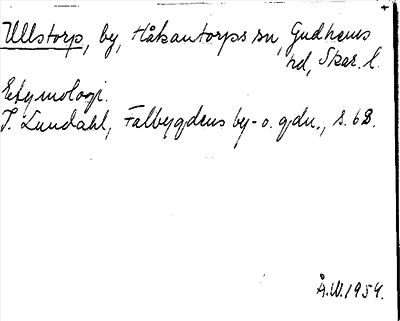 Ullstorp, by, Håkantorps sn, Gudhems
hd, Skar. l.
Etymologi.
I. Lundahl, Falbygdens by- o. gdn., s. 68.
Å.W. 1954.